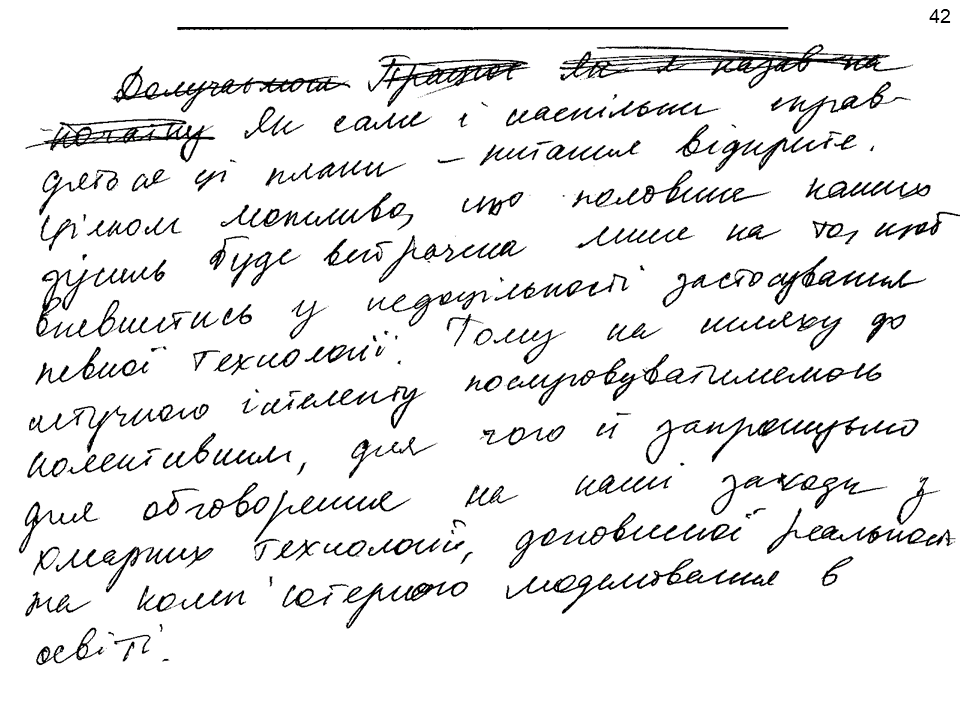 42
Долучаємося Працює Як я казав на
початку Як саме і наскільки справ-
дяться ці плани – питання відкрите.
Цілком можливо, що половина наших
зусиль буде витрачена лише на то, щоб
впевнитись у недоцільності застосування
певної технології. Тому на шляху до
штучного інтелекту послуговуватимемось
колективним, для чого й запрошуємо
для обговорення на наші заходи з
хмарних технологій, доповненої реальності
та комп'ютерного моделювання в
освіті.